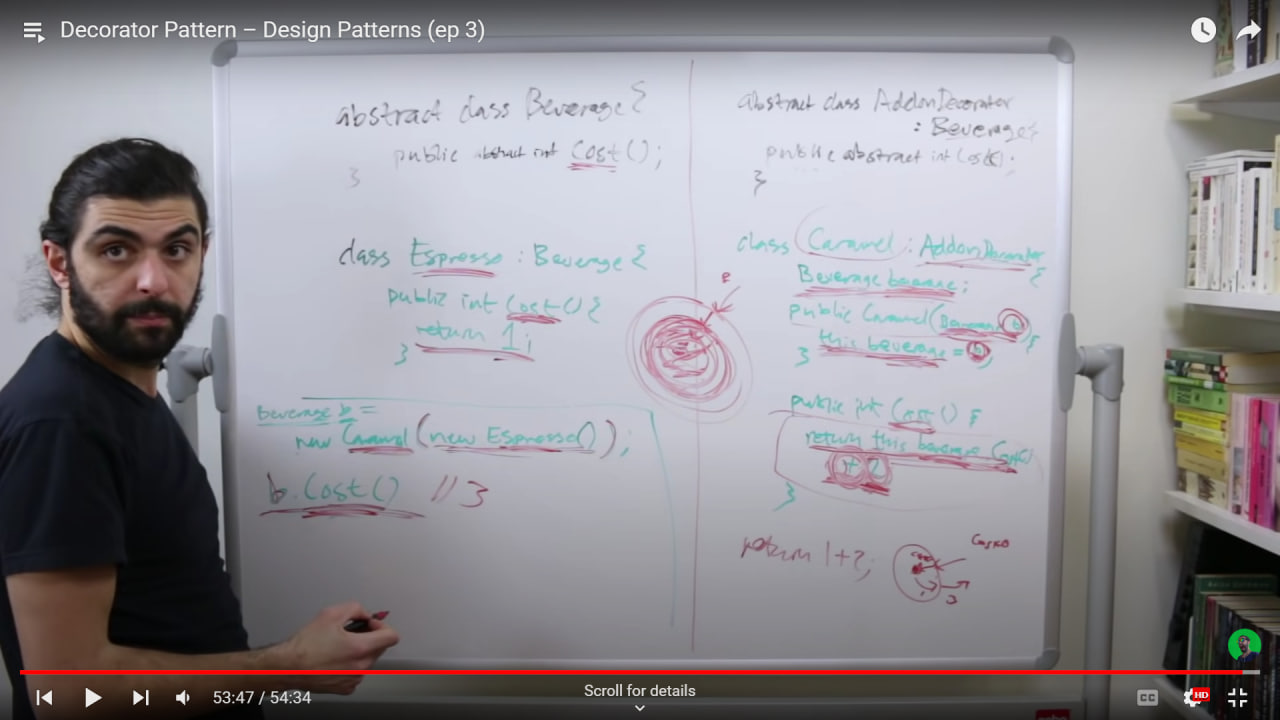 Decorator Pattern – Design Patterns (ep 3)
abstract class Beverage {
public abstract int Cost();
}
class Espresso : Beverage {
public int Cost() {
return 1;
}
beverage b =
new Caramel (new Espresso());
b.Cost() // 3
abstract class AddonDecorator
: Beverage {
public abstract int Cost();
}
class Caramel : AddonDecorator
{
Beverage beverage;
public Caramel(Beverage b) {
this.beverage = b;
}
public int Cost() {
return this.beverage.Cost()
+ 2
}
return 1+2;
3
53:47 / 54:34
Scroll for details
CC
HD